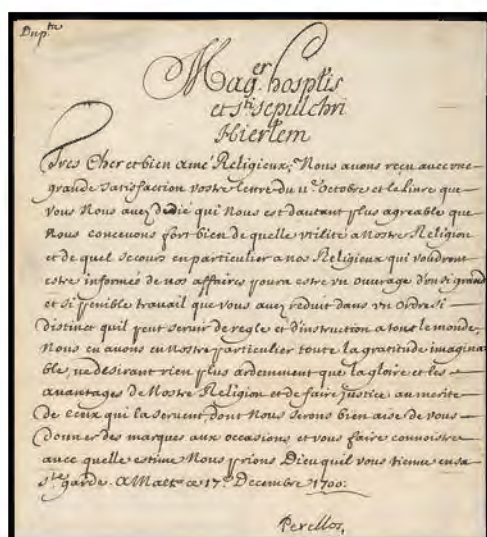 Dup.ta
Mag.er hosp̃lis
et s.ti sepulchri
Hierl̃em
Tres Cher et bien amé Religieux; Nous avons reçu avec vne
grande satisfaction vostre lettre du 11.e Octobre et le Livre que
vous Nous avez dedié qui Nous est dautant plus agreable que
Nous concevons fort bien de quelle vtilité a Nostre Religion
et de quel secours en particulier a nos Religieux qui voudront
estre informéz de nos affaires poura estre vn ouvrage d'un si grand
et si penible travail que vous avez reduit dans vn ordre si
distinct quil peut servir de regle et d'instruction a tout le monde,
Nous en avons en Nostre particulier toute la gratitude imagina-
ble, ne desirant rien plus ardemment que la gloire et les
avantages de Nostre Religion et de faire justice au merite
de ceux qui la servent, dont Nous serons bien aise de vous
donner des marques aux occasions et vous faire connoistre
avec quelle estime Nous prions Dieu quil vous tienne en sa
s.te garde. A Malte ce 17.e Decembre 1700.
Perellos,